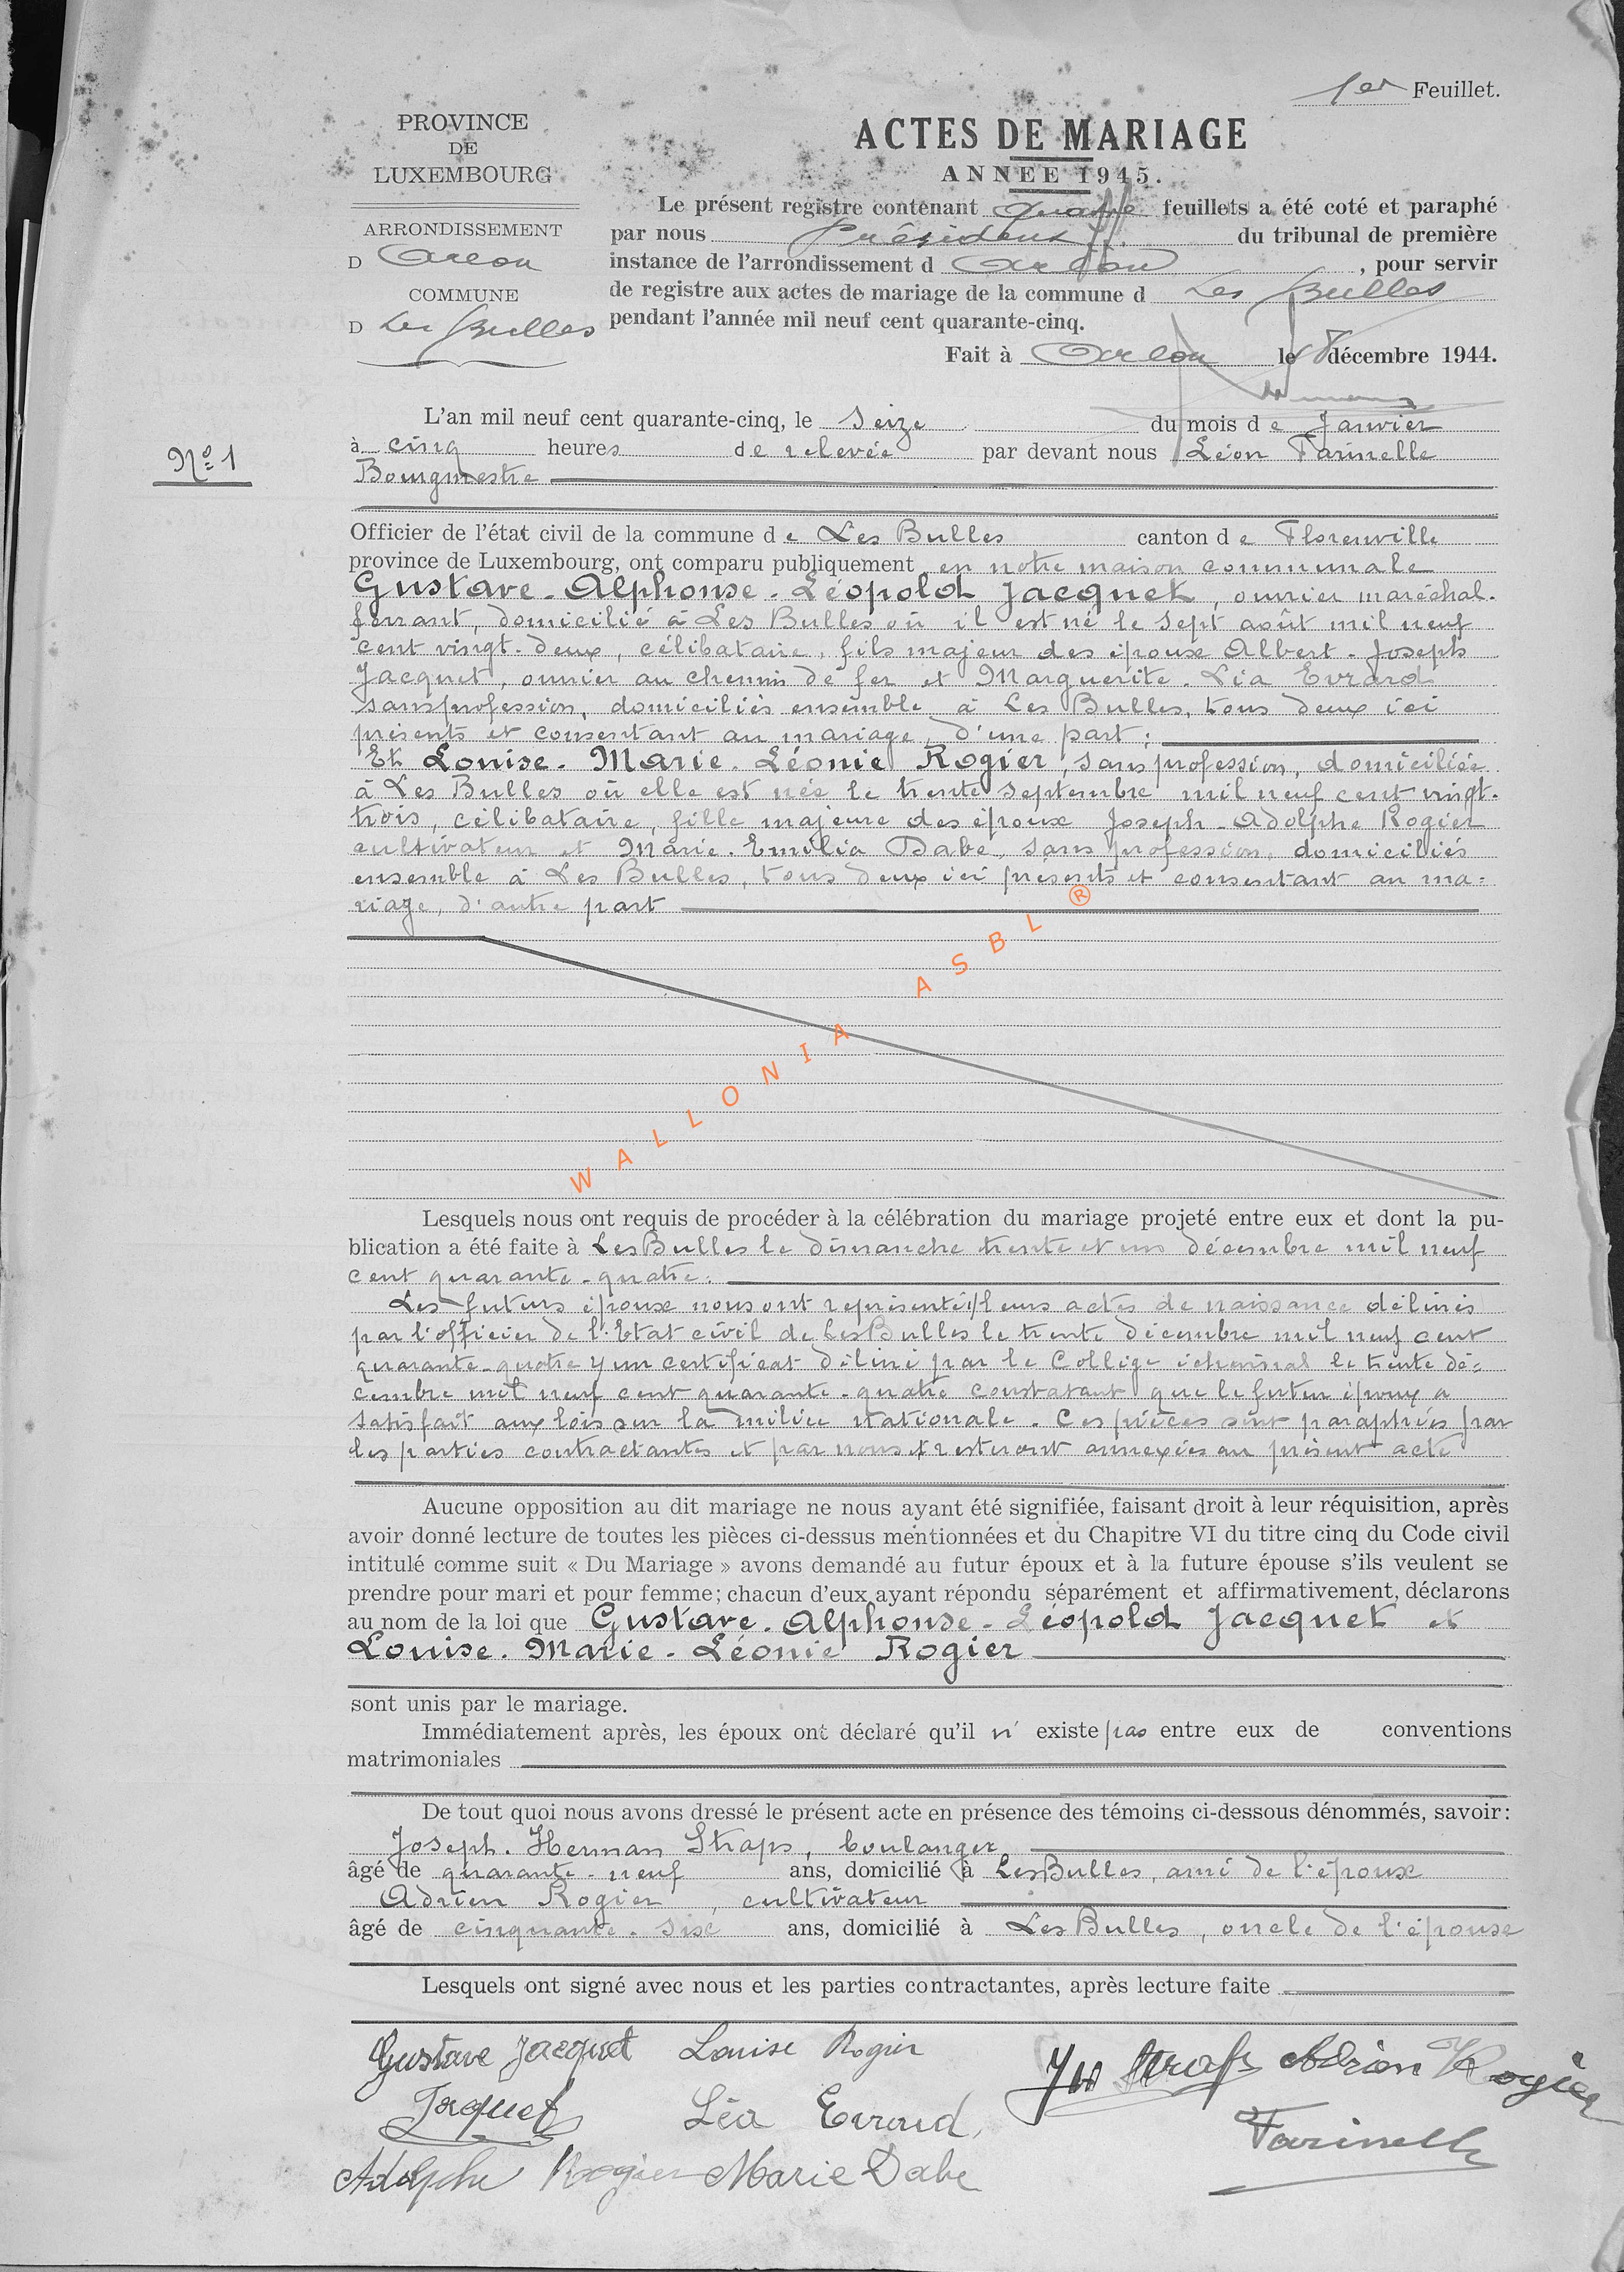 1er Feuillet.
PROVINCE
DE
LUXEMBOURG
ARRONDISSEMENT
D Arlon
COMMUNE
D Les Bulles
ACTES DE MARIAGE
ANNEE 1945.
Le présent registre contenant quatre feuillets a été coté et paraphé
par nous Président du tribunal de première
instance de l'arrondissement d Arlon, pour servir
de registre aux actes de mariage de la commune d Les Bulles
pendant l'année mil neuf cent quarante-cinq.
Fait à Arlon le 18 décembre 1944.
No 1
L'an mil neuf cent quarante-cinq, le Seize du mois de Janvier
à cinq heures de relevée par devant nous Léon Farinelle
Bourgmestre
Officier de l'état civil de la commune de Les Bulles canton de Florenville
province de Luxembourg, ont comparu publiquement en notre maison communale
Gustave-Alphonse-Léopold Jacquet, ouvrier maréchal-
ferrant, domicilié à Les Bulles où il est né le sept août mil neuf
cent vingt-deux, célibataire, fils majeur des époux Albert-Joseph
Jacquet, ouvrier au chemin de fer et Marguerite-Léa Evrard
sans profession, domiciliés ensemble à Les Bulles, tous deux ici
présents et consentant au mariage, d'une part;
Et Louise-Marie-Léonie Rogier, sans profession, domiciliée
à Les Bulles où elle est née le trente septembre mil neuf cent vingt-
trois, célibataire, fille majeure des époux Joseph-Adolphe Rogier
cultivateur et Marie-Emilia Dabe, sans profession, domiciliés
ensemble à Les Bulles, tous deux ici présents et consentant au ma=
riage, d'autre part
WALLONIA ASBL ®
Lesquels nous ont requis de procéder à la célébration du mariage projeté entre eux et dont la pu-
blication a été faite à Les Bulles le dimanche trente et un décembre mil neuf
cent quarante-quatre.
Les futurs époux nous ont représenté 1/ leurs actes de naissance délivrés
par l'officier de l'Etat civil de Les Bulles le trente décembre mil neuf cent
quarante-quatre 2/ un certificat délivré par le Collège échevinal le trente dé=
cembre mil neuf cent quarante-quatre constatant que le futur époux a
satisfait aux lois sur la milice nationale. Ces pièces sont paraphées par
les parties contractantes et par nous et resteront annexées au présent acte
Aucune opposition au dit mariage ne nous ayant été signifiée, faisant droit à leur réquisition, après
avoir donné lecture de toutes les pièces ci-dessus mentionnées et du Chapitre VI du titre cinq du Code civil
intitulé comme suit « Du Mariage » avons demandé au futur époux et à la future épouse s'ils veulent se
prendre pour mari et pour femme; chacun d'eux ayant répondu séparément et affirmativement, déclarons
au nom de la loi que Gustave-Alphonse-Léopold Jacquet et
Louise-Marie-Léonie Rogier
sont unis par le mariage.
Immédiatement après, les époux ont déclaré qu'il n'existe pas entre eux de conventions
matrimoniales
De tout quoi nous avons dressé le présent acte en présence des témoins ci-dessous dénommés, savoir:
Joseph-Herman Straps, boulanger
âgé de quarante-neuf ans, domicilié à Les Bulles, ami de l'époux
Adrien Rogier, cultivateur
âgé de cinquante-six ans, domicilié à Les Bulles, oncle de l'épouse
Lesquels ont signé avec nous et les parties contractantes, après lecture faite
Gustave Jacquet Louise Rogier JH Straps Adrien Rogier
Jacquet Léa Evrard, Farinelle
Adolphe Rogier Marie Dabe